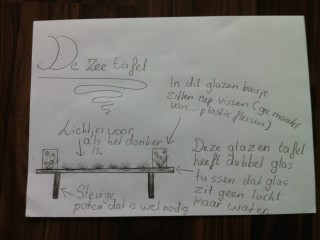 De zee tafel
In dit glazen buisje
zitten nep vissen (ge maakt
van... plastic flessen)
Lichtjes voor
als het donker
is.
Deze glazen tafel
heeft dubbel glas
tussen dat glas
zit geen lucht
maar water
Stevige
poten dat is wel nodig